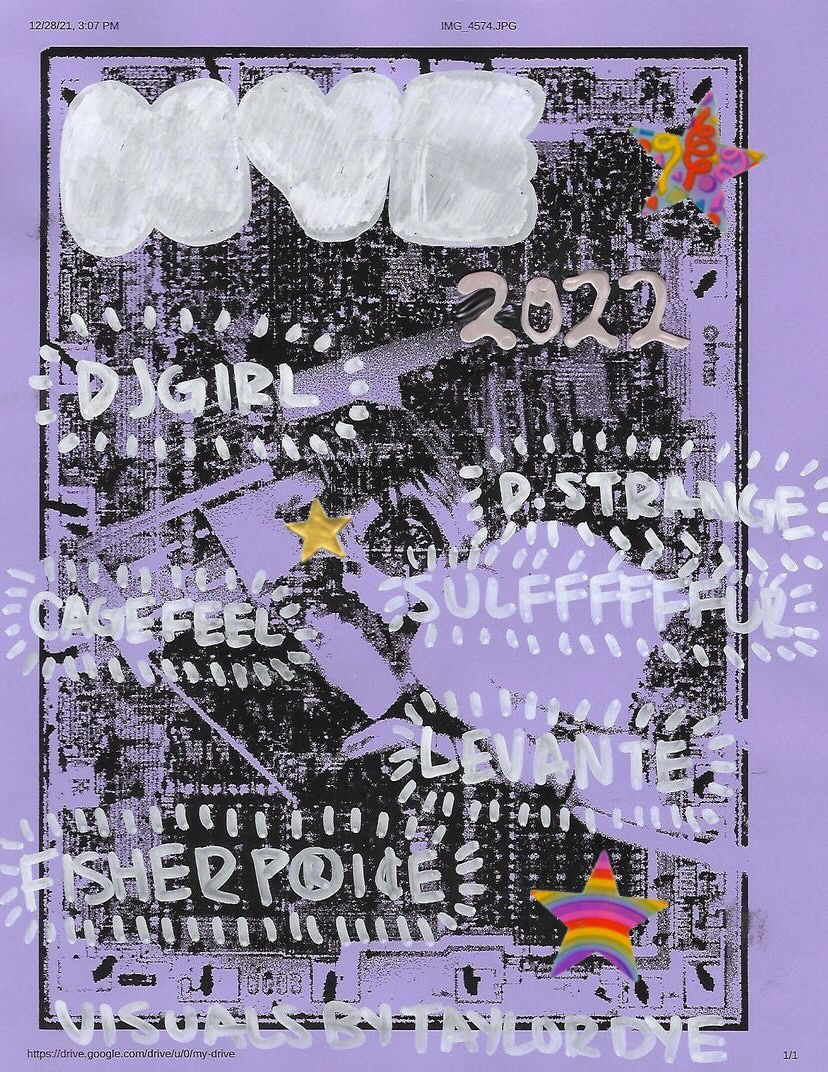 12/28/21, 3:07 PM
IMG_4574.JPG
NYE
2022
DJGIRL
D.STRANGE
CAGEFEEL
SULFFFFFFFUR
LEVANTE
FISHER P®I¢E
VISUALS BY TAYLOR DYE
https://drive.google.com/drive/u/0/my-drive
1/1